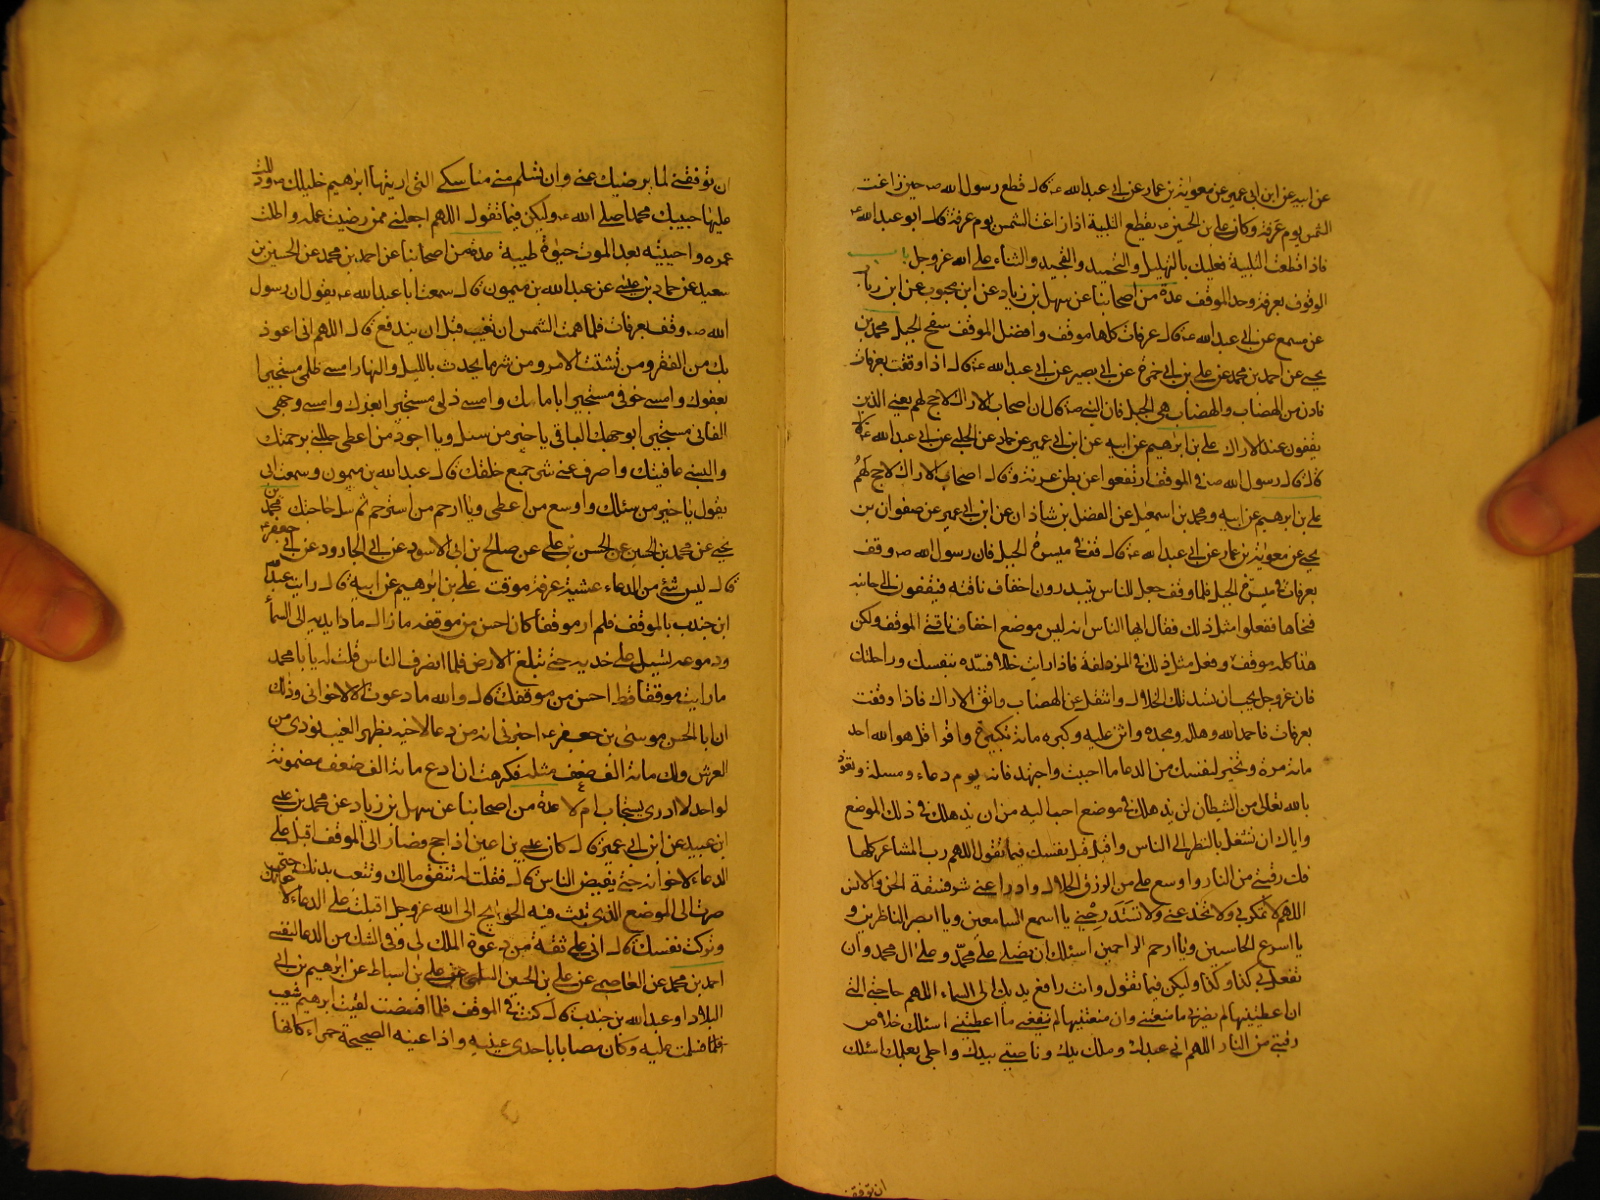 عن ابيه عن ابن ابى عمير عن معوية بن عمار عن ابى عبدالله ع قال قطع رسول الله ص حين زاغت
الشمس يوم عرفة وكان على بن الحسين ع يقطع التلبية اذا زاغت الشمس يوم عرفة قال ابو عبدالله ع
فاذا قطعت التلبية فعليك بالتهليل والتحميد والتمجيد والثناء على الله عزوجل باب
الوقوف بعرفة وحد الموقف عدة من اصحابنا عن سهل بن زياد عن ابن محبوب عن ابن رياب
عن مسمع عن ابى عبدالله ع قال عرفات كلها موقف وافضل الموقف سفح الجبل محمد بن
يحيى عن احمد بن محمد عن على بن ابى حمزة عن ابى بصير عن ابى عبدالله ع قال اذا وقفت بعرفات
فادن من الهضاب والهضاب هى الجبل فان النبى ص قال ان اصحاب الاراك لا حج لهم يعنى الذين
يقفون عند الاراك على بن ابرهيم عن ابيه عن ابن ابى عمير عن حماد عن الحلبى عن ابى عبدالله ع قال
قال قال رسول الله ص فى الموقف ارتفعوا عن بطن عرنة وقال اصحاب الاراك لا حج لهم
على بن ابرهيم عن ابيه ومحمد بن اسمعيل عن الفضل بن شاذان عن ابن ابى عمير عن صفوان بن
يحيى عن معوية بن عمار عن ابى عبدالله ع قال قف فى ميسرة الجبل فان رسول الله ص وقف
بعرفات فى ميسرة الجبل فلما وقف جعل الناس يبتدرون اخفاف ناقته فيقفون الى جانبه
فنحاها ففعلوا مثل ذلك فقال ايها الناس انه ليس موضع اخفاف ناقتى الموقف ولكن
هذا كله موقف وفعل مثل ذلك فى المزدلفة فاذا رايت خللا فسده بنفسك وراحلتك
فان عزوجل يحب ان تسد تلك الخلال وانتقل عن الهضاب واتق الاراك فاذا وقفت
بعرفات فاحمد الله وهلله ومجده واثن عليه وكبره مائة تكبيرة واقرا قل هو الله احد
مائة مرة وتخير لنفسك من الدعا ما احببت واجتهد فانه يوم دعاء ومسئلة وتعوذ
بالله تعالى من الشيطان لن يذهلك فى موضع احب اليه من ان يذهلك فى ذلك الموضع
واياك ان تشتغل بالنظر الى الناس واقبل قبل نفسك فيما تقول اللهم رب المشاعر كلها
فك رقبتى من النار واوسع على من الرزق الحلال وادرا عنى شر فسقة الجن والانس
اللهم لا تمكر بى ولا تخدعنى ولا تستدرجنى يا اسمع السامعين ويا ابصر الناظرين و
يا اسرع الحاسبين ويا ارحم الراحمين اسئلك ان تصلى على محمد وعلى ال محمد وان
تفعل بى كذا وكذا وليكن فيما تقول وانت رافع يديك الى السماء اللهم حاجتى التى
ان اعطيتنيها لم يضرنى ما منعتنى وان منعتنيها لم ينفعنى ما اعطيتنى اسئلك خلاص
رقبتى من النار اللهم انى عبدك وملك يدك وناصيتى بيدك واجلى بعلمك اسئلك
ان توفقنى
ان توفقنى لما يرضيك عنى وان تسلم منى مناسكى التى اريتها ابرهيم خليلك ص ودللت
عليها حبيبك محمدا صلى الله ع وليكن فيما تقول اللهم اجعلنى ممن رضيت عمله واطلت
عمره واحييته بعد الموت حيوة طيبة عدة من اصحابنا عن احمد بن محمد عن الحسين بن
سعيد عن حماد بن عيسى عن عبدالله بن ميمون قال سمعت ابا عبدالله ع يقول ان رسول
الله ص وقف بعرفات فلما همت الشمس ان تغيب قبل ان يندفع قال اللهم انى اعوذ
بك من الفقر ومن تشتت الامر ومن شر ما يحدث بالليل والنهار امسى ظلمى مستجيرا
بعفوك وامسى خوفى مستجيرا بامانك وامسى ذلى مستجيرا بعزك وامسى وجهى
الفانى مستجيرا بوجهك الباقى يا خير من سئل ويا اجود من اعطى جللنى برحمتك
والبسنى عافيتك واصرف عنى شر جميع خلقك قال عبدالله بن ميمون وسمعت ابى
يقول يا خير من سئل واوسع من اعطى ويا ارحم من استرحم ثم سل حاجتك محمد بن
يحيى عن محمد بن الحسين عن الحسن بن على عن صالح بن ابى الاسود عن ابى الجارود عن ابى جعفر ع
قال ليس شئ من الدعاء عشية عرفة موقت على بن ابرهيم عن ابيه قال رايت عبدالله
ابن جندب بالموقف فلم ار موقفا كان احسن من موقفه ما زال مادا يديه الى السما
ودموعه تسيل على خديه حتى تبلغ الارض فلما انصرف الناس قلت له يا با محمد
ما رايت موقفا قط احسن من موقفك قال والله ما دعوت الا لاخوانى وذلك
ان ابا الحسن موسى بن جعفر ع اخبرنى انه من دعا لاخيه بظهر الغيب نودى من
العرش ولك مائة الف ضعف مثله فكرهت ان ادع مائة الف ضعف مضمونة
لواحد لا ادرى يستجاب ام لا عدة من اصحابنا عن سهل بن زياد عن محمد بن عيسى
ابن عبيد عن ابن ابى عمير قال كان عيسى بن اعين اذا حج فصار الى الموقف اقبل على
الدعاء لاخوانه حتى يفيض الناس قال فقلت له تنفق مالك وتتعب بدنك حتى اذا
صرت الى الموضع الذى تبث فيه الحوايج الى الله عزوجل اقبلت على الدعاء لا
وتركت نفسك قال انى على ثقة من دعوة الملك لى وفى الشك من الدعا لنفسى
احمد بن محمد عن العاصمى عن على بن الحسين السلمى عن على بن اسباط عن ابرهيم بن ابى
البلاد او عبدالله بن جندب قال كنت فى الموقف فلما افضت لقيت ابرهيم شعيب
فلما سلمت عليه وكان مصابا باحدى عينيه واذا عينه الصحيحة حمراء كانها